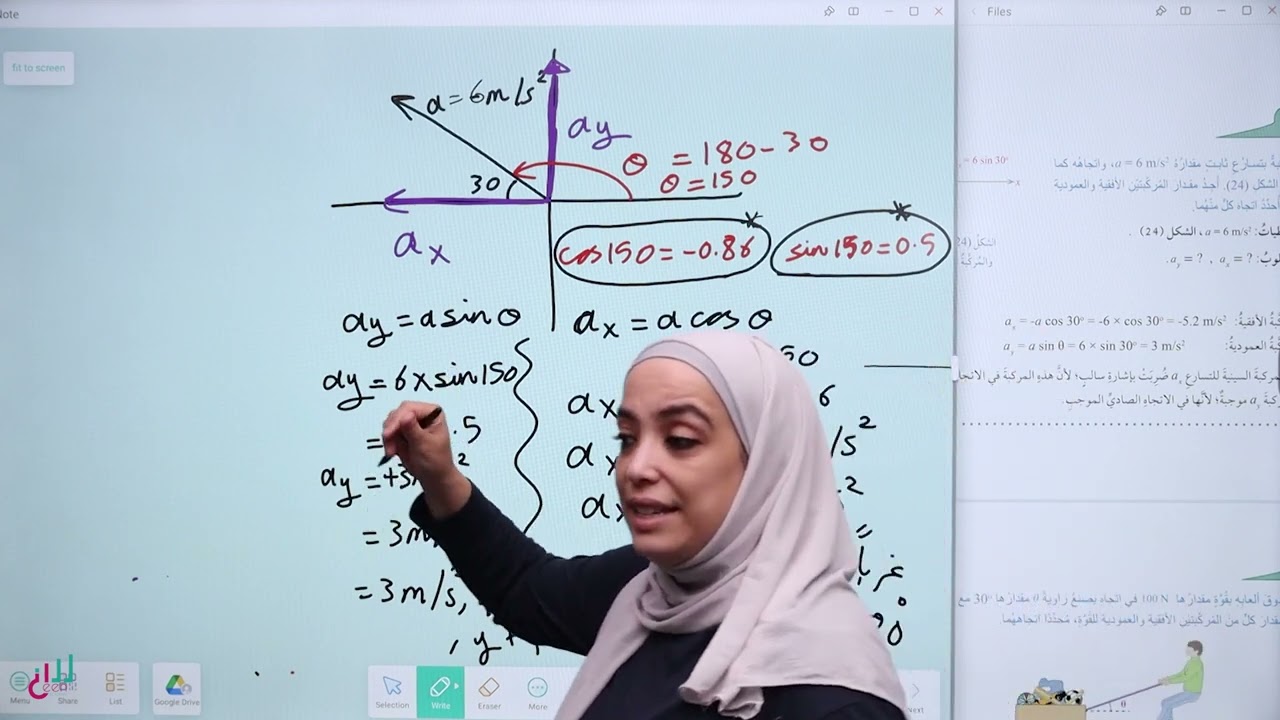 Note
Files
fit to screen
a = 6m/s²
ay
θ = 180 - 30
θ = 150
30
ax
cos150 = -0.86
sin150 = 0.5
ay = a sin θ
ax = a cos θ
ay = 6 x sin150
50
ax
6
= .5
ax /s²
ay = +3 ²
ax .2
= 3m
=
= 3m/s²,
, y+
90
= 6 sin 30°
x
بتسارُع ثابتٍ مقدارُهُ a = 6 m/s²، واتجاهُه كما
الشكل (24). أجدُ مقدارَ المُركّبتَيْن الأفقية والعمودية
أُحدّدُ اتجاه كلٍّ منْهُما.
a = 6 m/s²، الشكل (24).
aₓ = ? , aᵧ = ? .
aₓ = -a cos 30° = -6 × cos 30° = -5.2 m/s²
aᵧ = a sin θ = 6 × sin 30° = 3 m/s²
السينية للتسارع aₓ ضُرِبَتْ بإشارةِ سالبٍ؛ لأنَّ هذهِ المركبةَ في
aᵧ موجبةٌ؛ لأنَّها في الاتجاهِ الصاديِّ الموجبِ.
ألعابه بقُوّةٍ مقدارُها 100 N في اتجاه يصنعُ زاويةً θ مقدارُها 30° مع
كلٍّ من المُركّبتَيْن الأفقية والعمودية للقُوّة، مُحدّدًا اتجاههُما.
θ
Menu
Share
List
Google Drive
Selection
Write
Eraser
More
Next